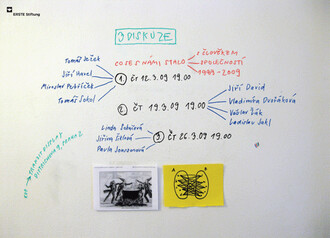 ERSTE Stiftung
3 DISKUZE
CO SE S NÁMI STALO
S ČLOVĚKEM
SPOLEČNOSTÍ
1989-2009
Tomáš Ježek
Jiří Havel
Miroslav
Tomáš Sokol
1. ČT 12.3.09 19.00
2. ČT 19.3.09 19.00
Jiří David
Vladimíra Dvořáková
Václav Žák
Ladislav
Linda Sokačová
Jiřina Šiklová
Pavla
3. ČT 26.3.09 19.00
TRANZIT DISPLAY
A
B